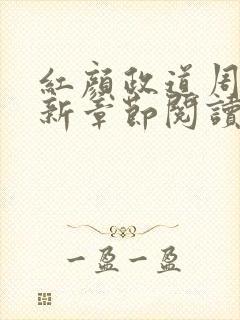 紅顏政道周
新章節閱讀
一盈一盈